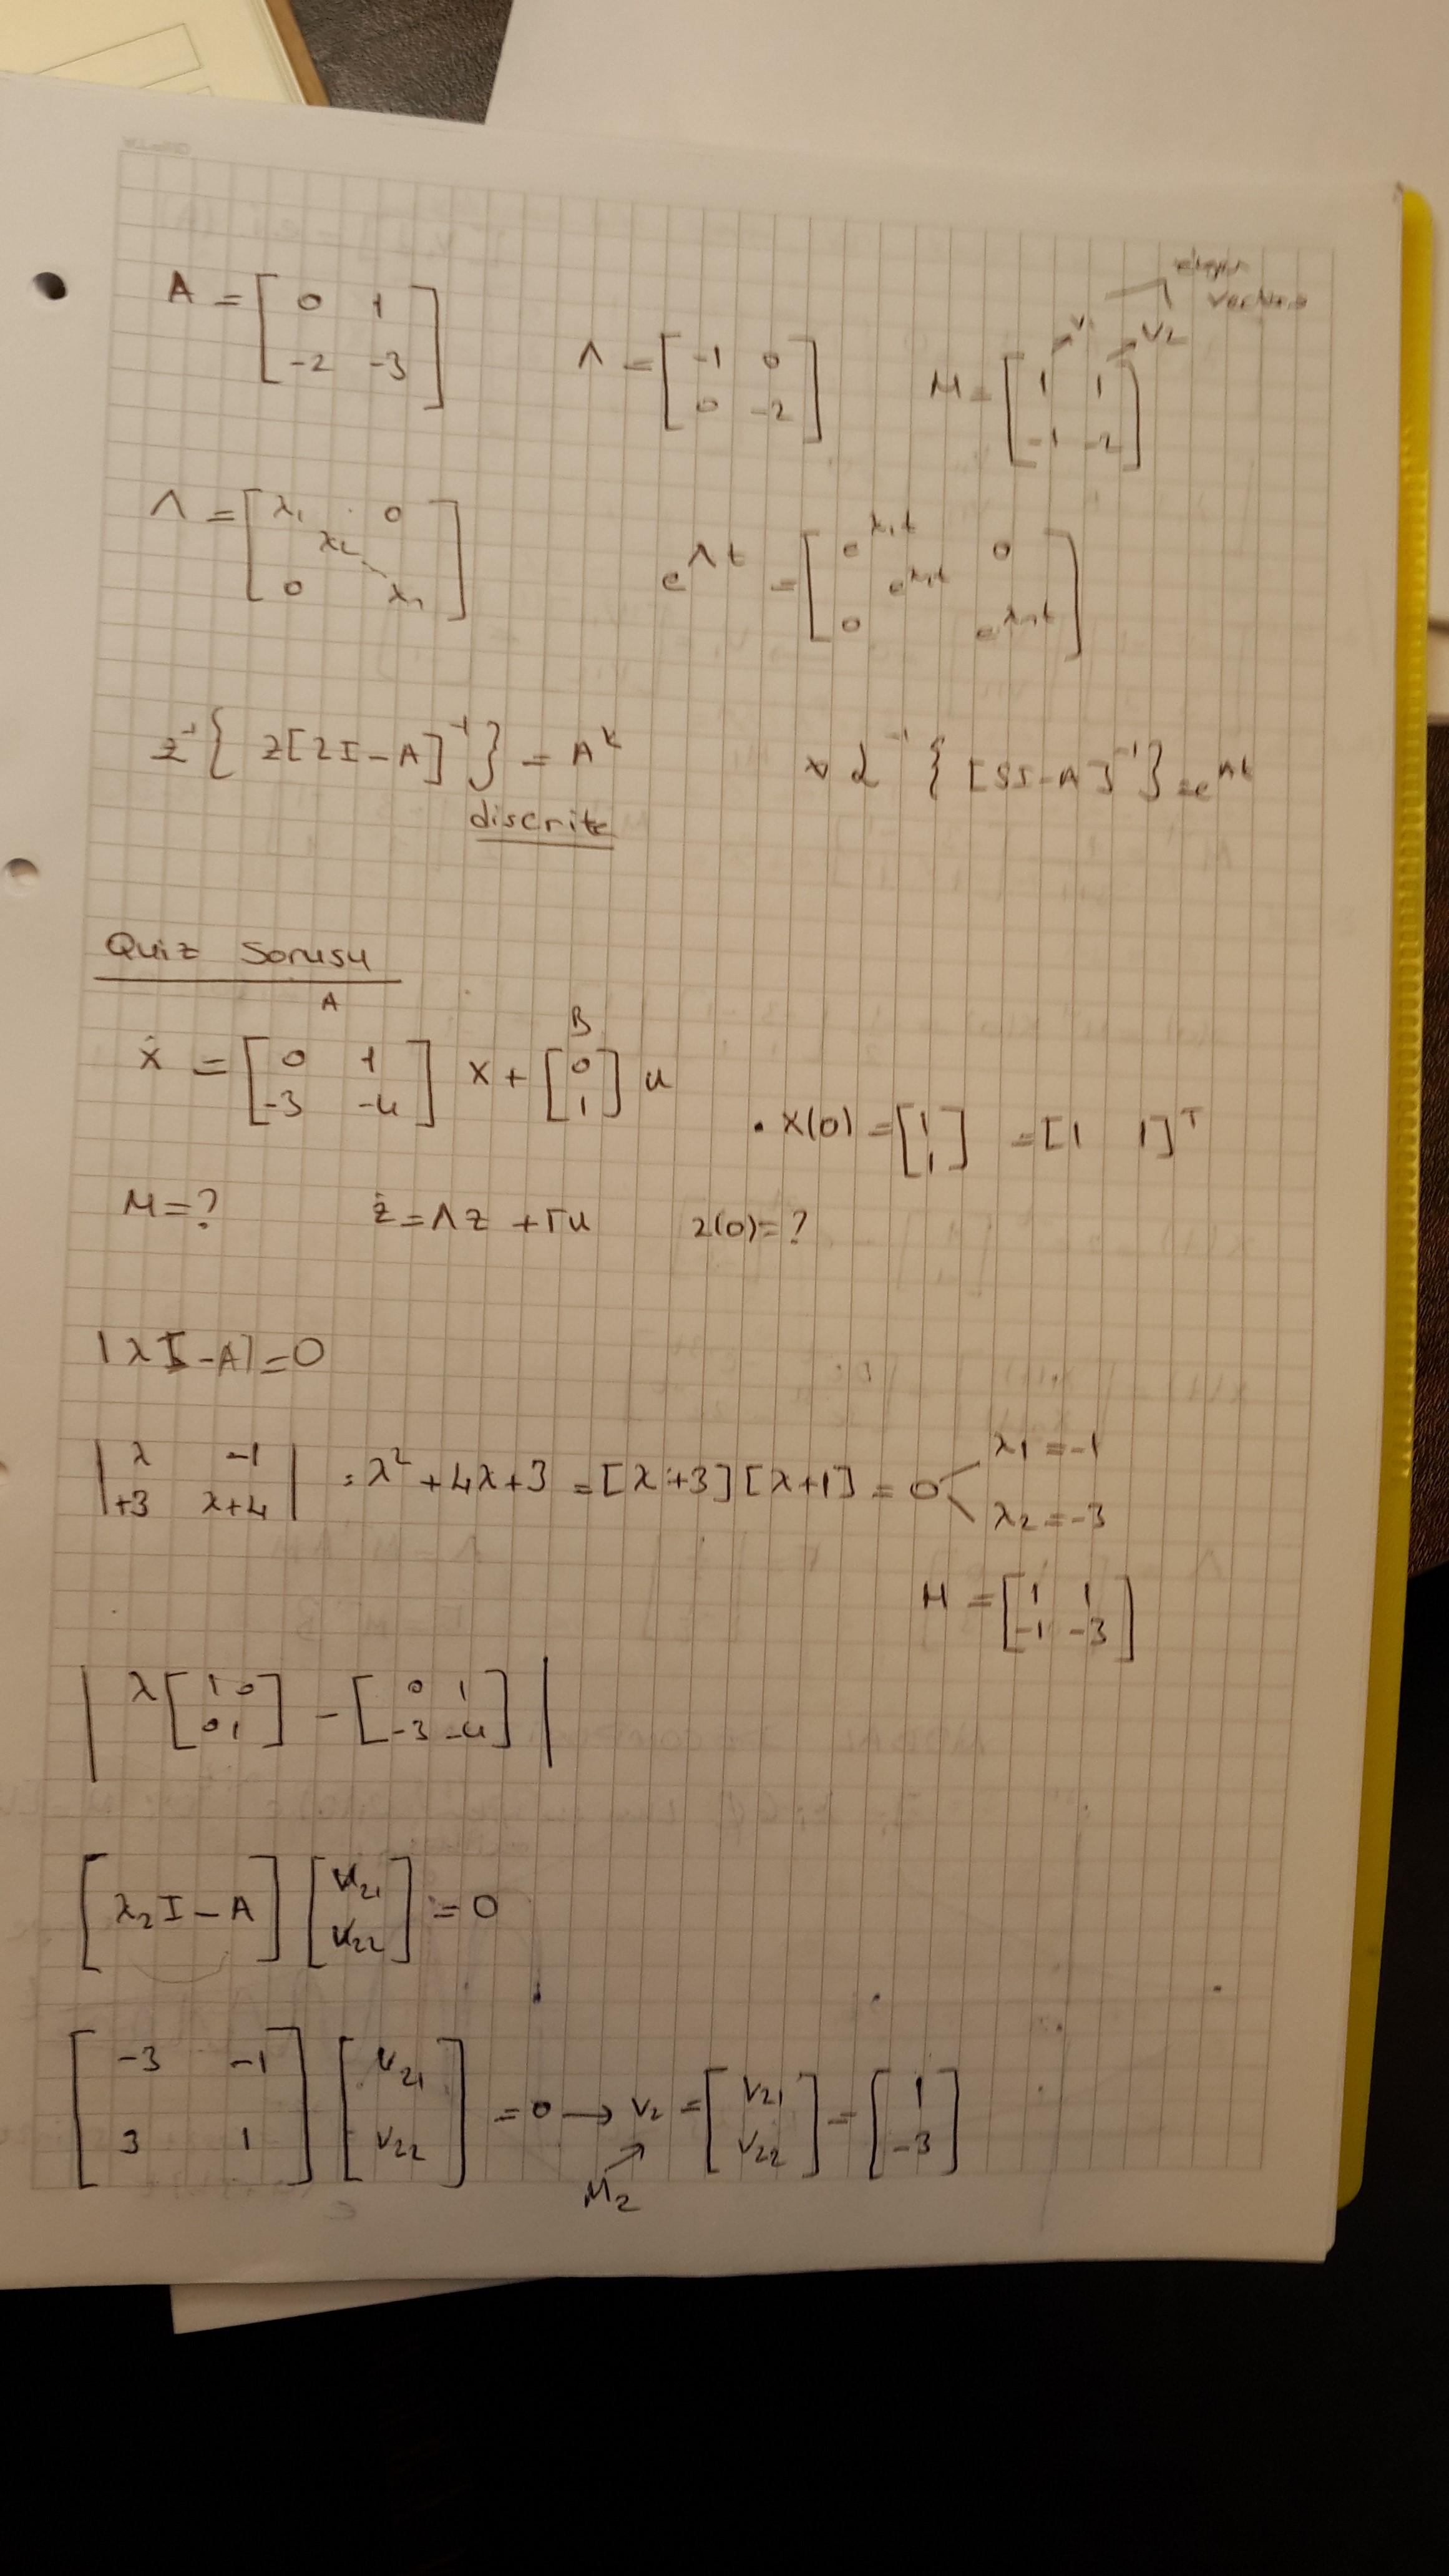 A = [0 1; -2 -3]
Λ = [-1 0; 0 -2]
M = [1 1; -1 -2]
v₁ v₂
Λ = [λ₁ 0; λ₂; 0 λₙ]
e^Λt = [e^λ₁t 0; e^λ₂t; 0 e^λₙt]
z⁻¹{ z[zI-A]⁻¹ } = A^k
discrite
ℒ⁻¹{ [SI-A]⁻¹ } = e^At
Quiz Sorusu
A B
ẋ = [0 1; -3 -4] x + [0; 1] u
. x(0) = [1; 1] = [1 1]ᵀ
M=? ż = Λz + Γu z(0)=?
|λI-A|=0
|λ -1; +3 λ+4| = λ² + 4λ+3 = [λ+3][λ+1] = 0
λ₁ = -1
λ₂ = -3
M = [1 1; -1 -3]
| λ[1 0; 0 1] - [0 1; -3 -4] |
[λ₂I - A] [v₂₁; v₂₂] = 0
[-3 -1; 3 1] [v₂₁; v₂₂] = 0 → v₂ = [v₂₁; v₂₂] = [1; -3]
M₂